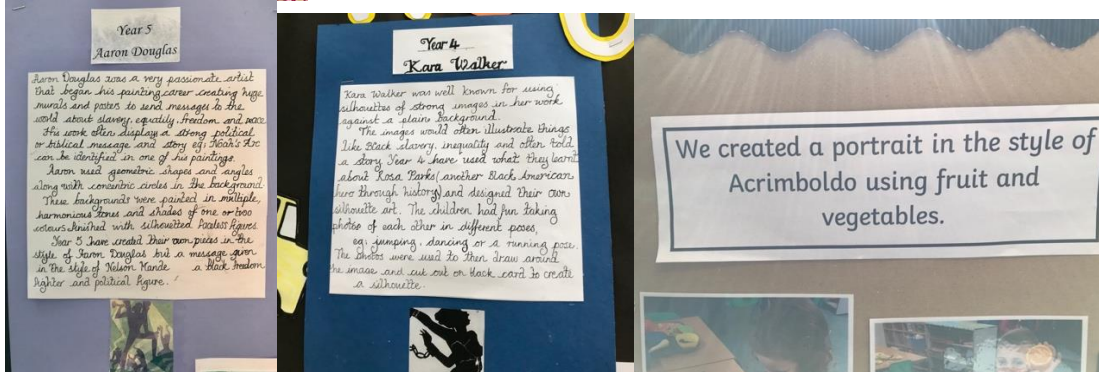 Year 5
Aaron Douglas
Aaron Douglas was a very passionate artist
that began his painting career creating huge
murals and posters to send messages to the
world about slavery, equality, freedom and peace.
His work often displays a strong political
or biblical message and story eg: Noah's Arc
can be identified in one of his paintings.
Aaron used geometric shapes and angles
along with concentric circles in the background.
These backgrounds were painted in multiple,
harmonious tones and shades of one or two
colours finished with silhouetted faceless figures.
Year 5 have created their own pieces in the
style of Aaron Douglas but a message given
in the style of Nelson Mande a black freedom
fighter and political figure.
Year 4
Kara Walker
Kara Walker was well known for using
silhouettes of strong images in her work
against a plain background.
The images would often illustrate things
like Black slavery, inequality and often told
a story. Year 4 have used what they learnt
about Rosa Parks (another Black American
hero through history) and designed their own
silhouette art. The children had fun taking
photos of each other in different poses,
eg: jumping, dancing or a running pose.
The photos were used to then draw around
the image and cut out on black card to create
a silhouette.
We created a portrait in the style of
Acrimboldo using fruit and
vegetables.